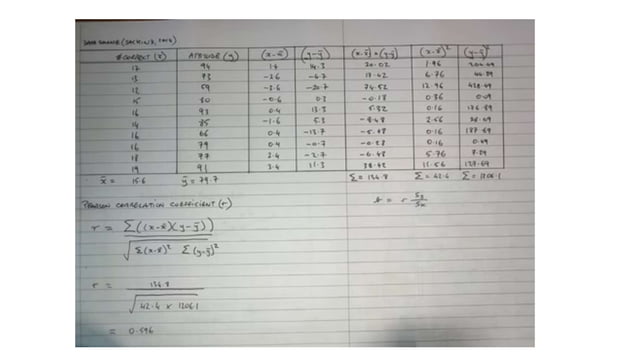 # CORRECT (x) ATTITUDE (y) (x-x̄) (y-ȳ) (x-x̄)×(y-ȳ) (x-x̄)² (y-ȳ)²
17 94 1.4 14.3 20.02 1.96 204.49
13 73 -2.6 -6.7 17.42 6.76 44.89
12 59 -3.6 -20.7 74.52 12.96 428.49
15 80 -0.6 0.3 -0.18 0.36 0.09
16 93 0.4 13.3 5.32 0.16 176.89
14 85 -1.6 5.3 -8.48 2.56 28.09
16 66 0.4 -13.7 -5.48 0.16 187.69
16 79 0.4 -0.7 -0.28 0.16 0.49
18 77 2.4 -2.7 -6.48 5.76 7.29
19 91 3.4 11.3 38.42 11.56 127.69
x̄ = 15.6 ȳ = 79.7 Σ = 134.8 Σ = 42.4 Σ = 1206.1
PEARSON CORRELATION COEFFICIENT (r) b = r Sy/Sx
r = Σ((x-x̄)(y-ȳ))
√Σ(x-x̄)² Σ(y-ȳ)²
r = 134.8
√42.4 × 1206.1
= 0.596